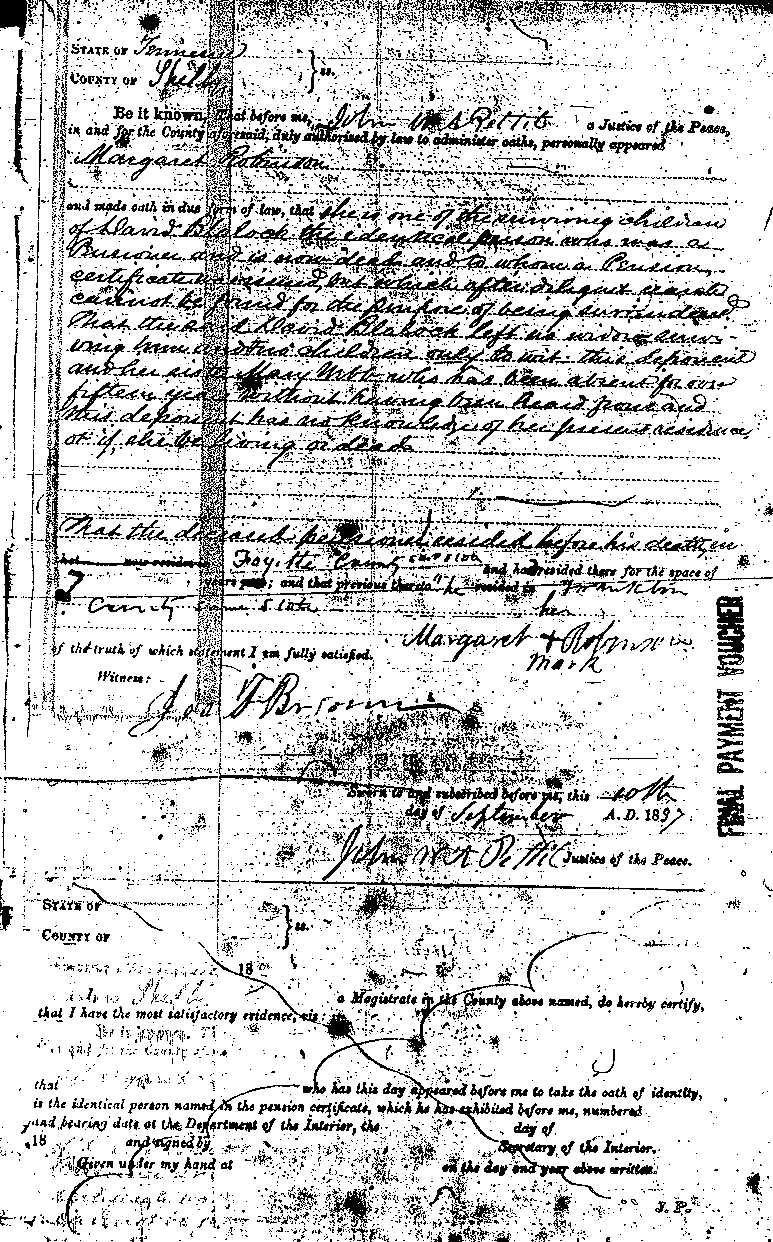 STATE OF Tennessee
COUNTY OF Shelby } ss.
Be it known, That before me, John W A Pettit a Justice of the Peace,
in and for the County aforesaid, duly authorised by law to administer oaths, personally appeared
Margaret Robinson
and made oath in due form of law, that she is one of the surviving children
of David Blalock the identical person who was a
Pensioner and is now dead, and to whom a Pension
certificate was issued, but which after diligent search
cannot be found for the purpose of being surrendered.
That the said David Blalock left no widow surviv-
ing him and two children only to wit this deponent
and her sister Mary Webb who has been absent for over
fifteen years without having been heard from and
this deponent has no knowledge of her present residence,
or if she be living or dead.
That the deceased pensioner resided before his death, in
Fayette County and had resided there for the space of
7 years; and that previous thereto he resided in Franklin
County same State
her
of the truth of which statement I am fully satisfied. Margaret + Robinson
mark
Witness:
Jas F Brown
FINAL PAYMENT VOUCHER
Sworn to and subscribed before me, this 10th
day of September A. D. 1857
John W A Pettit Justice of the Peace.
STATE OF
COUNTY OF } ss.
18
I, a Magistrate in the County above named, do hereby certify,
that I have the most satisfactory evidence, viz:
that who has this day appeared before me to take the oath of identity,
is the identical person named in the pension certificate, which he has exhibited before me, numbered
and bearing date at the Department of the Interior, the day of
18 and signed by Secretary of the Interior.
Given under my hand at on the day and year above written.
J. P.